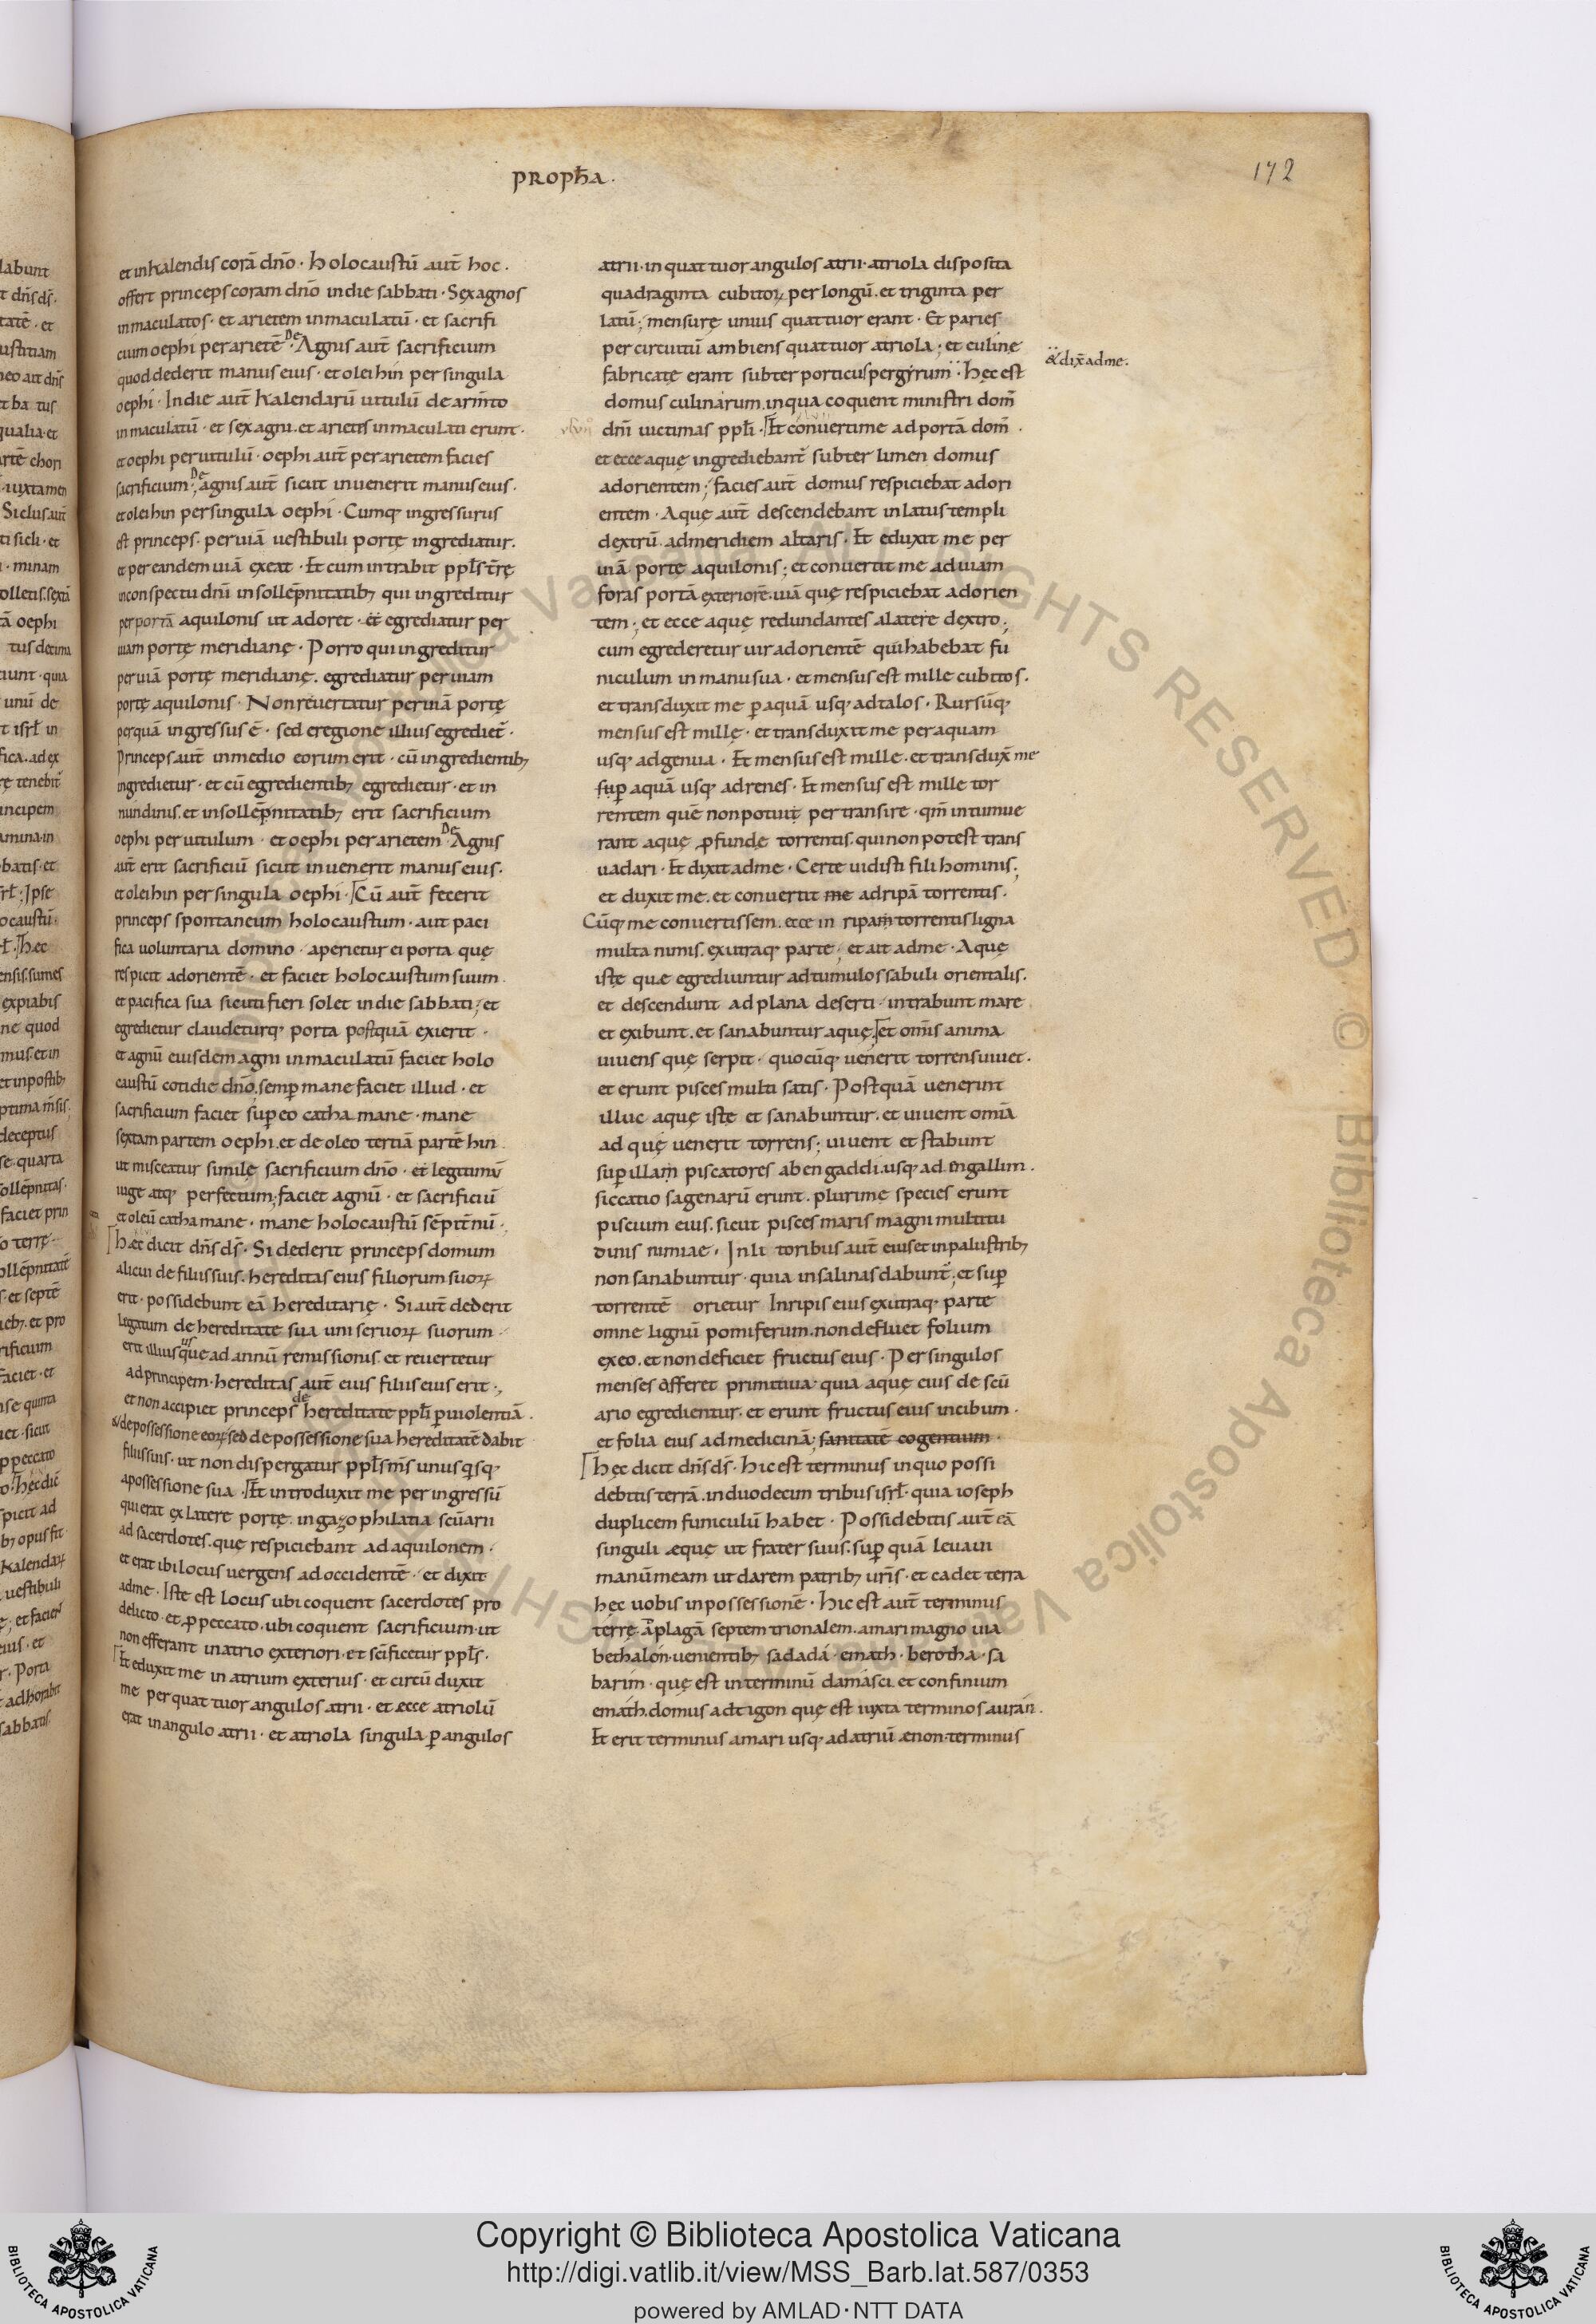 proph̄a.
172
et in kalendis corā dn̄o · holocaustū aut̄ hoc .
offert princeps coram dn̄o in die sabbati · Sex agnos
inmaculatos · et arietem inmaculatū · et sacrifi
cium oephi per arietē · De Agnis aut̄ sacrificium
quod dederit manus eius · et olei hin per singula
oephi · In die aut̄ kalendarū uitulū de arm̄to
inmaculatū · et sex agni . et arietes inmaculati erunt .
et oephi per uitulū · oephi aut̄ per arietem facies
sacrificium ; De agnis aut̄ sicut inuenerit manus eius .
et olei hin per singula oephi · Cumq; ingressurus
est princeps . per uiā uestibuli portę ingrediatur .
et per eandem uiā exeat · Et cum intrabit ppl̄s t̄rę
in conspectu dn̄i in sollēpnitatib; qui ingreditur
per portā aquilonis ut adoret · egrediatur per
uiam portę meridianę · Porro qui ingreditur
per uiā portę meridianę . egrediatur per uiam
portę aquilonis · Non reuertatur per uiā portę
per quā ingressus ē · sed e regione illius egrediet̄ ·
Princeps aut̄ in medio eorum erit · cū ingredientib;
ingredietur · et cū egredientib; egredietur · et in
nundinis . et in sollēpnitatib; erit sacrificium
oephi per uitulum · et oephi per arietem De Agnis
aut̄ erit sacrificiū sicut inuenerit manus eius .
et olei hin per singula oephi · Cū aut̄ fecerit
princeps spontaneum holocaustum · aut paci
fica uoluntaria domino · aperietur ei porta quę
respicit ad orientē · et faciet holocaustum suum
et pacifica sua sicuti fieri solet in die sabbati ; et
egredietur claudeturq; porta postquā exierit ·
et agnū eiusdem agni inmaculatū faciet holo
caustū cotidie dn̄o . semp̄ mane faciet illud · et
sacrificium faciet sup̄ eo catha mane · mane
sextam partem oephi . et de oleo tertiā partē hin
ut misceatur similę sacrificium dn̄o · et legitimū
iuge atq; perfectum ; faciet agnū · et sacrificiū
et oleū catha mane · mane holocaustū sēpit̄nū ·
hæc dicit dn̄s ds̄ · Si dederit princeps domum
alicui de filiis suis . hereditas eius filiorum suoꝝ
erit · possidebunt eā hereditarię · Si aut̄ dederit
legatum de hereditate sua uni seruoꝝ suorum
erit illius usque ad annū remissionis . et reuertetur
ad principem · hereditas aut̄ eius filiis eius erit ·
et non accipiet princeps de hereditate ppl̄i p̱ uiolentiā .
& de possessione eoꝝ sed de possessione sua hereditatē dabit
filiis suis · ut non dispergatur ppl̄s m̄s unusq̱sq;
a possessione sua · Et introduxit me per ingressū
qui erat ex latere portę . in gazophilatia scūarii
ad sacerdotes . quę respiciebant ad aquilonem ·
et erat ibi locus uergens ad occidentē · et dixit
ad me · Iste est locus ubi coquent sacerdotes pro
delicto · et p̱ peccato · ubi coquent sacrificium · ut
non efferant in atrio exteriori · et sc̄ificetur ppl̄s ·
Et eduxit me in atrium exterius · et circū duxit
me per quattuor angulos atrii · et ecce atriolū
erat in angulo atrii · et atriola singula p̱ angulos
atrii · in quattuor angulos atrii · atriola disposita
quadraginta cubitoꝝ per longū . et triginta per
latū ; mensurę unius quattuor erant · Et paries
per circuitū ambiens quattuor atriola ; et culinę
fabricatę erant subter porticus per gyrum · hęc est
& dix̄ ad me .
domus culinarum . in qua coquent ministri dom̄
dn̄i uictimas ppl̄i · Et conuertit me ad portā dom̄ .
et ecce aquę ingrediebant̄ subter limen domus
ad orientem ; facies aut̄ domus respiciebat ad ori
entem · Aquę aut̄ descendebant in latus templi
dextrū . ad meridiem altaris · Et eduxit me per
uiā portę aquilonis ; et conuertit me ad uiam
foras portā exteriorē . uiā quę respiciebat ad orien
tem ; et ecce aquę redundantes a latere dextro ;
cum egrederetur uir ad orientē qui habebat fu
niculum in manu sua · et mensus est mille cubitos .
et transduxit me p̱ aquā usq; ad talos · Rursūq;
mensus est mille · et transduxit me per aquam
usq; ad genua · Et mensus est mille . et transdux̄ me
sup̄ aquā usq; ad renes · Et mensus est mille tor
rentem quē non potui pertransire · qm̄ intumue
rant aquę p̱fundę torrentis . qui non potest trans
uadari · Et dixit ad me · Certe uidisti fili hominis ;
et duxit me . et conuertit me ad ripā torrentis .
Cūq; me conuertissem . ecce in ripam torrentis ligna
multa nimis . ex utraq; parte ; et ait ad me · Aquę
istę quæ egrediuntur ad tumulos sabuli orientalis .
et descendunt ad plana deserti · intrabunt mare
et exibunt . et sanabuntur aquę . et omīs anima
uiuens quę serpit · quocūq; uenerit torrens uiuet .
et erunt pisces multi satis · Postquā uenerint
illuc aquę istę et sanabuntur . et uiuent omīa
ad quę uenerit torrens ; uiuent et stabunt
sup̄ illam piscatores ab engaddi . usq; ad engallim .
siccatio sagenarū erunt . plurime species erunt
piscium eius . sicut pisces maris magni multitu
dinis nimiae · In litoribus aut̄ eius et in palustrib;
non sanabuntur · quia in salinas dabunt̄ ; et sup̄
torrentē orietur In ripis eius ex utraq; parte
omne lignū pomiferum . non defluet folium
ex eo . et non deficiet fructus eius · Per singulos
menses afferet primitiua · quia aquę eius de scū
ario egredientur . et erunt fructus eius in cibum .
et folia eius ad medicinā ; sanitatē cogentium ·
hęc dicit dn̄s ds̄ · hic est terminus in quo possi
debitis terrā . in duodecim tribus isrl̄ · quia ioseph
duplicem funiculū habet · Possidebitis aut̄ eā
singuli æquę ut frater suus . sup̄ quā leuaui
manū meam ut darem patrib; ur̄is · et cadet terra
hęc uobis in possessionē · hic est aut̄ terminus
terrę . A plagā septemtrionalem . a mari magno uia
bethalon · uenientib; sadada · emath · berotha · sa
barim · quę est in terminū damasci . et confinium
emath . domus adtigon quę est iuxta terminos auran .
Et erit terminus a mari usq; ad atriū ænon · terminus
Copyright © Biblioteca Apostolica Vaticana
http://digi.vatlib.it/view/MSS_Barb.lat.587/0353
powered by AMLAD · NTT DATA
BIBLIOTECA APOSTOLICA VATICANA
BIBLIOTECA APOSTOLICA VATICANA